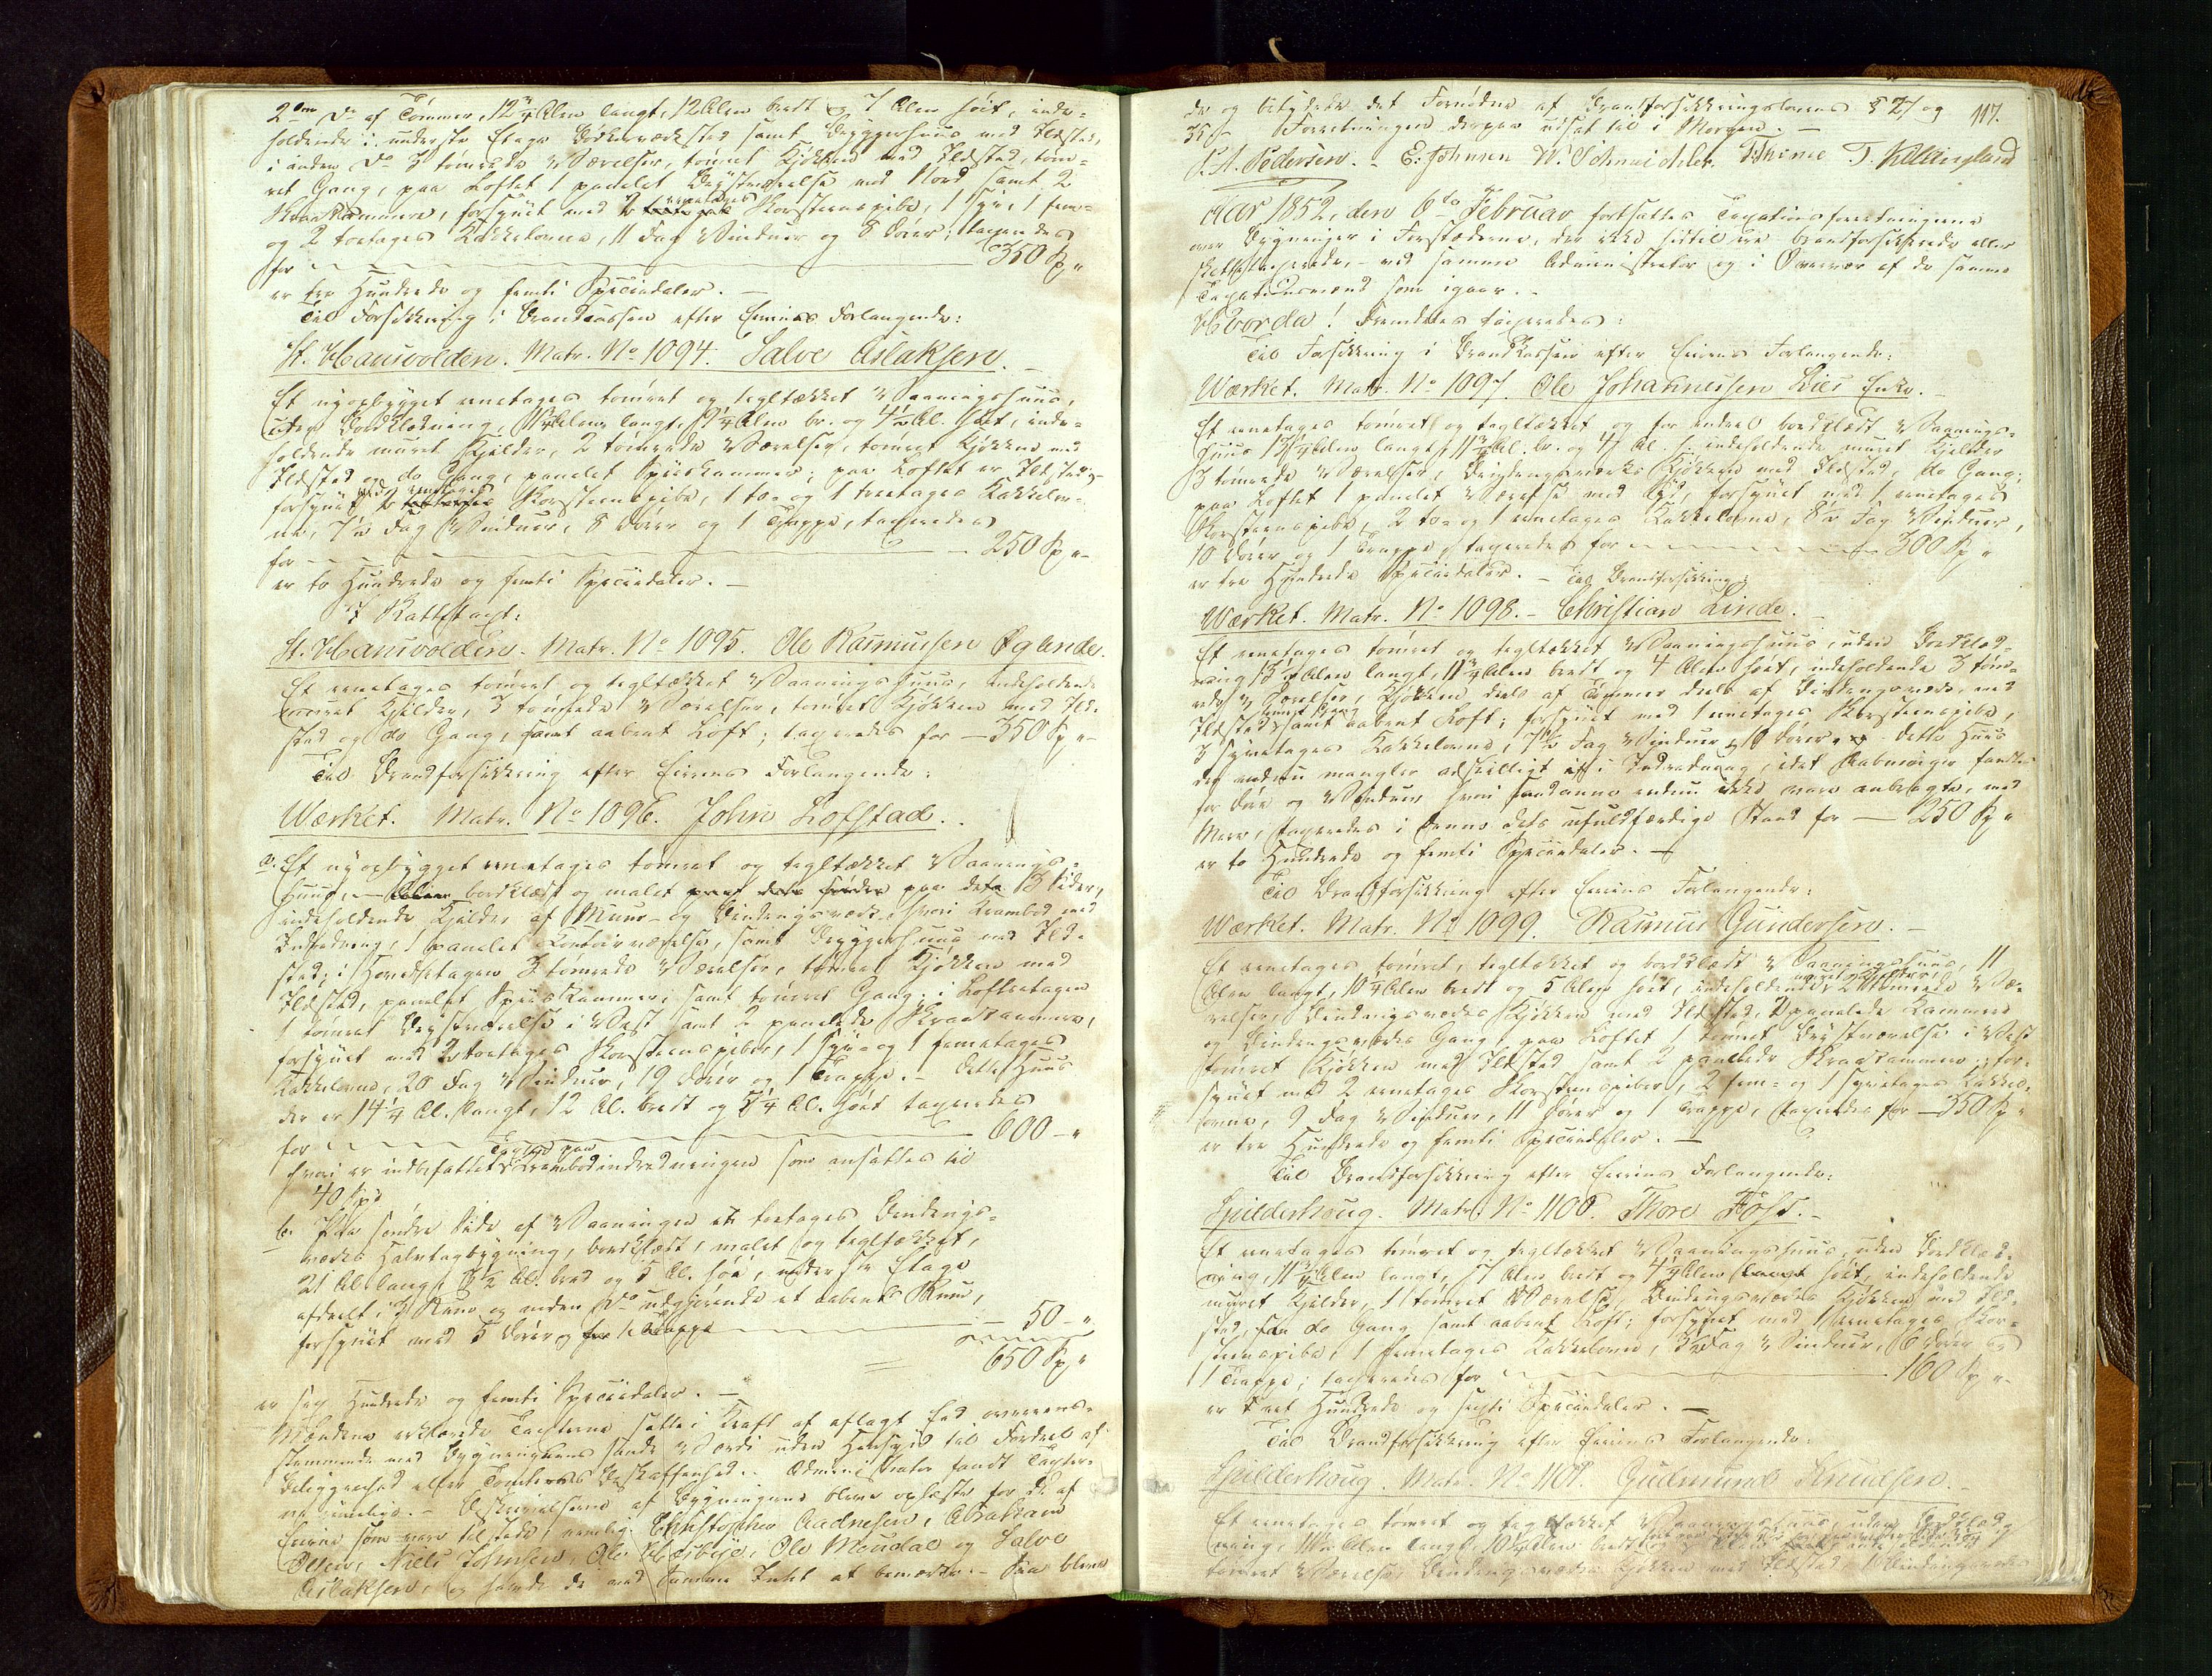 2den Do af Tømmer, 12 3/4 Alen langt, 12 Alen bredt og 7 Alen høit, inde-
holdende i underste Etage Bødkerværksted samt Bryggerhuus med Ildsted,
i anden Do 3 tømrede Værelser, tømret Kjøkken med Ildsted, tøm-
ret Gang, paa Loftet 1 panelet Qvistværelse mod Nord samt 2
Skraakammere, forsynet med 2 eenetages Skorsteenspibe, 1 syv-, 1 fem-
og 2 toetages Kakkelovne, 11 Fag Vinduer og 8 Døre; taxeredes
for 350 Sp "
er tre Hundrede og femti Speciedaler. —
Til Forsikkring i Brandcassen efter Eierens Forlangende:
St. Hansvolden. Matr. No 1094. Salve Aslaksen. —
Et nyopbygget eenetages tømret og tegltækket Vaaningshuus,
uden Bordklædning, Alen langt, 9 1/4 Alen br. og 4 1/2 Al. høit, inde-
holdende muret Kjelder, 2 tømrede Værelser, tømret Kjøkken med
Ildsted og do Gang, panelet Spiiskammer; paa Loftet er Ildsted;
forsynet med eenetages Skorsteenspibe, 1 to- og 1 treetages Kakkelov-
ne, 7 1/2 Fag Vinduer, 8 Døre og 1 Trappe, taxeredes
for 250 Sp "
er to Hundrede og femti Speciedaler. —
Skattetaxt:
St. Hansvolden. Matr. No 1095. Ole Rasmussen Øglende.
Et eenetages tømret og tegltækket Vaaningshuus, indeholdende
muret Kjelder, 3 tømrede Værelser, tømret Kjøkken med Ild-
sted og do Gang, samt aabent Loft; taxeredes for — 350 Sp "
Til Brandforsikkring efter Eierens Forlangende:
Værket. Matr. No 1096. John Lofstad.
a. Et nyopbygget eenetages tømret og tegltækket Vaanings-
huus, — bordklædt og malet paa dets 3 Sider,
indeholdende Kjelder af Muur- og Bindingsværk, hvori Krambod med
Indredning, 1 panelet Contoirværelse, samt Bryggerhuus med Ild-
sted; i Hovedetagen 3 tømrede Værelser, tømret Kjøkken med
Ildsted, panelet Spiiskammer, samt tømret Gang; i Loftsetagen
1 tømret Qvistværelse i Vest samt 2 panelede Skraakammere,
forsynet med 2 toetages Skorsteenspiber, 1 syv- og 1 femetages
Kakkelovne, 20 Fag Vinduer, 19 Døre og 1 Trappe. — Dette Huus
der er 14 1/4 Al. langt, 12 Al. bredt og 5 1/4 Al. høit taxeredes
for 600 — "
hvori er indbefattet Taxten paa Krambodindredningen som ansattes til
40 Spd
b. Paa søndre Side af Vaaningen et toetages Bindings-
værks Halvtagbygning, bordklædt, malet og tegltækket,
21 Al. langt, 3 1/2 Al. bred og 5 Al. høi, underste Etage
afdeelt i 3 Rum og anden Do udgjørende et aabent Rum,
forsynet med 5 Døre og 1 Trappe 50 — "
650 Sp "
er sex Hundrede og femti Speciedaler. —
Mændene erklærede Taxterne satte i Kraft af aflagt Eed overeens-
stemmende med Bygningernes sande Værdi uden Hensyn til Fordeel af
Beliggenhed eller Tomternes Beskaffenhed. Administrator fandt Taxter-
ne rimelige. — Beskrivelserne af Bygningerne bleve oplæste for de af
Eierne som vare tilstede, nemlig: Christopher Aadnesen, Abraham
Olsen, Niels Johnsen, Ole Ole Meudal og Salve
Aslaksen, og havde de mod samme Intet at bemærke. — Saa bleve
117.
de og betydede det Fornødne af Brandforsikkringslovens § 21 og
35. — Forretningen derpaa udsat til i Morgen. —
P. A. Pedersen. — E. Johnsen W. Schneidler. Thime T. Kallingland
Aar 1852, den 6te Februar fortsattes Taxationsforretningerne
over Bygninger i Forstæderne, der ikke hidtil ere brandforsikkrede eller
skattetaxerede, — ved samme Administrator og i Overvær af de samme
Taxationsmænd som igaar. —
Hvorda! Fremdeles taxeredes:
Til Forsikkring i Brandkassen efter Eierens Forlangende:
Værket. Matr. No 1097. Ole Johannessen Lies Enke.
Et eenetages tømret og tegltækket og for endeel bordklædt Vaanings-
huus 13 1/4 Alen langt, 11 3/4 Al. br. og 4 Al. h. indeholdende muret Kjelder
3 tømrede Værelser, Bindingsværks Kjøkken med Ildsted, do Gang;
paa Loftet 1 panelet Værelse mod Syd, forsynet med 1 eenetages
Skorsteenspibe, 2 to- og 1 eenetages Kakkelovne, 8 1/2 Fag Vinduer,
10 Døre og 1 Trappe, taxeredes for 300 Sp "
er tre Hundrede Speciedaler. — Til Brandforsikkring:
Værket. Matr. No 1098. — Christian Linde.
Et eenetages tømret og tegltækket Vaaningshuus, uden Bordklæd-
ning 13 1/4 Alen langt, 11 3/4 Alen bredt og 4 Alen høit, indeholdende 3 tøm-
rede Værelser, Kjøkken deels af Tømmer deels af Bindingsværk, med
Ildsted samt Gang samt aabent Loft; forsynet med 1 eenetages Skorsteenspibe,
3 syvetages Kakkelovne, 7 1/2 Fag Vinduer, 8 Døre. Dette Huus
der endnu mangler adskilligt i Indredning, idet Aabninger fandtes
for Dør og Vinduer hvori saadanne endnu ikke vare anbragte, med
Mere, taxeredes i denne dets ufuldfærdige Stand for — 250 Sp "
er to Hundrede og femti Speciedaler. —
Til Brandforsikkring efter Eierens Forlangende:
Værket. Matr. No 1099. Rasmus Gundersen. —
Et eenetages tømret, tegltækket og bordklædt Vaaningshuus, 11
Alen langt, 10 1/4 Alen bredt og 5 Alen høit, indeholdende muret Kjelder, 2 tømrede Væ-
relser, Bindingsværks Kjøkken med Ildsted, 2 panelede Kammere
og Bindingsværks Gang, paa Loftet 1 tømret Qvistværelse i Vest
tømret Kjøkken med Ildsted samt 2 panelede Skraakammere; for-
synet med 2 eenetages Skorsteenspiber, 2 fem- og 1 syvetages Kakkel-
ovne, 9 Fag Vinduer, 11 Døre og 1 Trappe, taxeredes for — 350 Sp "
er tre Hundrede og femti Speciedaler. —
Til Brandforsikkring efter Eierens Forlangende:
Spilderhoug. Matr. No 1100. Thore Fost. —
Et eenetages tømret og tegltækket Vaaningshuus, uden Bordklæd-
ning, 11 3/4 Alen langt, 7 Alen bredt og 4 1/4 Alen høit, indeholdende
muret Kjelder, 1 tømret Værelse, Bindingsværks Kjøkken med Ild-
sted, do Gang samt aabent Loft; forsynet med 1 eenetages Skor-
steenspibe, 1 femetages Kakkelovn, 3 1/2 Fag Vinduer, 6 Døre og
1 Trappe; taxeredes for 160 Sp "
er eet Hundrede og sexti Speciedaler. —
Til Brandforsikkring efter Eierens Forlangende:
Spilderhoug. Matr. No 1101. Gudmund Knudsen. —
Et eenetages tømret og tegltækket Vaaningshuus, uden Bordklæd-
ning, 11 1/2 Alen langt, 10 1/4 Alen bredt og
tømret Værelse, Bindingsværks Kjøkken med Ildsted, Bindingsværks